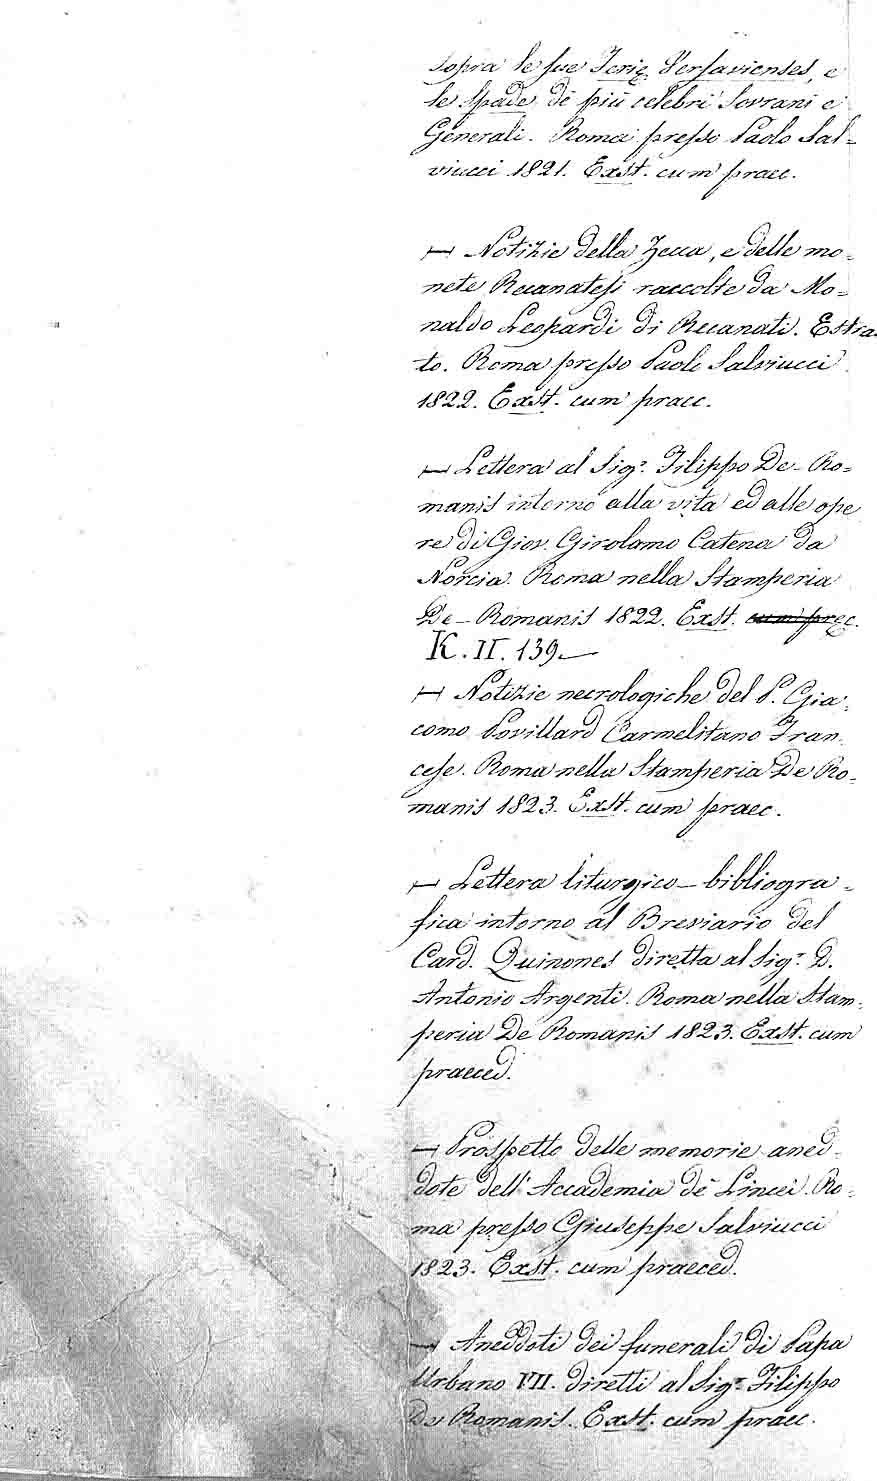 sopra le sue Ferię Varsavienses, e
le Spade de' più celebri Sovrani e
Generali. Roma presso Paolo Sal=
viucci 1821. Exst. cum praec.
— Notizie della Zecca, e delle mo=
nete Recanatesi raccolte da Mo=
naldo Leopardi di Recanati. Estra
to. Roma presso Paolo Salviucci
1822. Exst. cum praec.
— Lettera al Sigr. Filippo De-Ro=
manis intorno alla vita ed alle ope
re di Giov. Girolamo Catena da
Norcia. Roma nella Stamperia
De-Romanis 1822. Exst. cum pręc.
K. II. 139—
— Notizie necrologiche del P. Gia=
como Povillard Carmelitano Fran=
cese. Roma nella Stamperia De Ro=
manis 1823. Exst. cum praec.
— Lettera liturgico-bibliogra=
fica intorno al Breviario del
Card. Quinones diretta al Sigr. D.
Antonio Argenti. Roma nella Stam=
peria De Romanis 1823. Exst. cum
praeced.
— Prospetto delle memorie aned=
dote dell'Accademia de' Lincei. Ro=
ma presso Giuseppe Salviucci
1823. Exst. cum praeced.
— Aneddoti dei funerali di Papa
Urbano VII. diretti al Sigr. Filippo
De Romanis. Exst. cum praec.